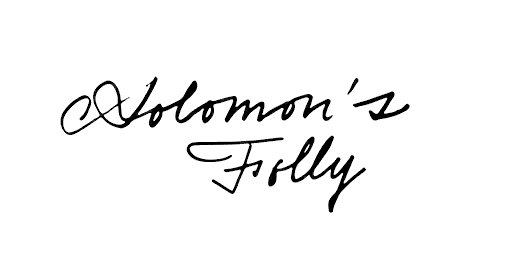 Solomon's
Folly